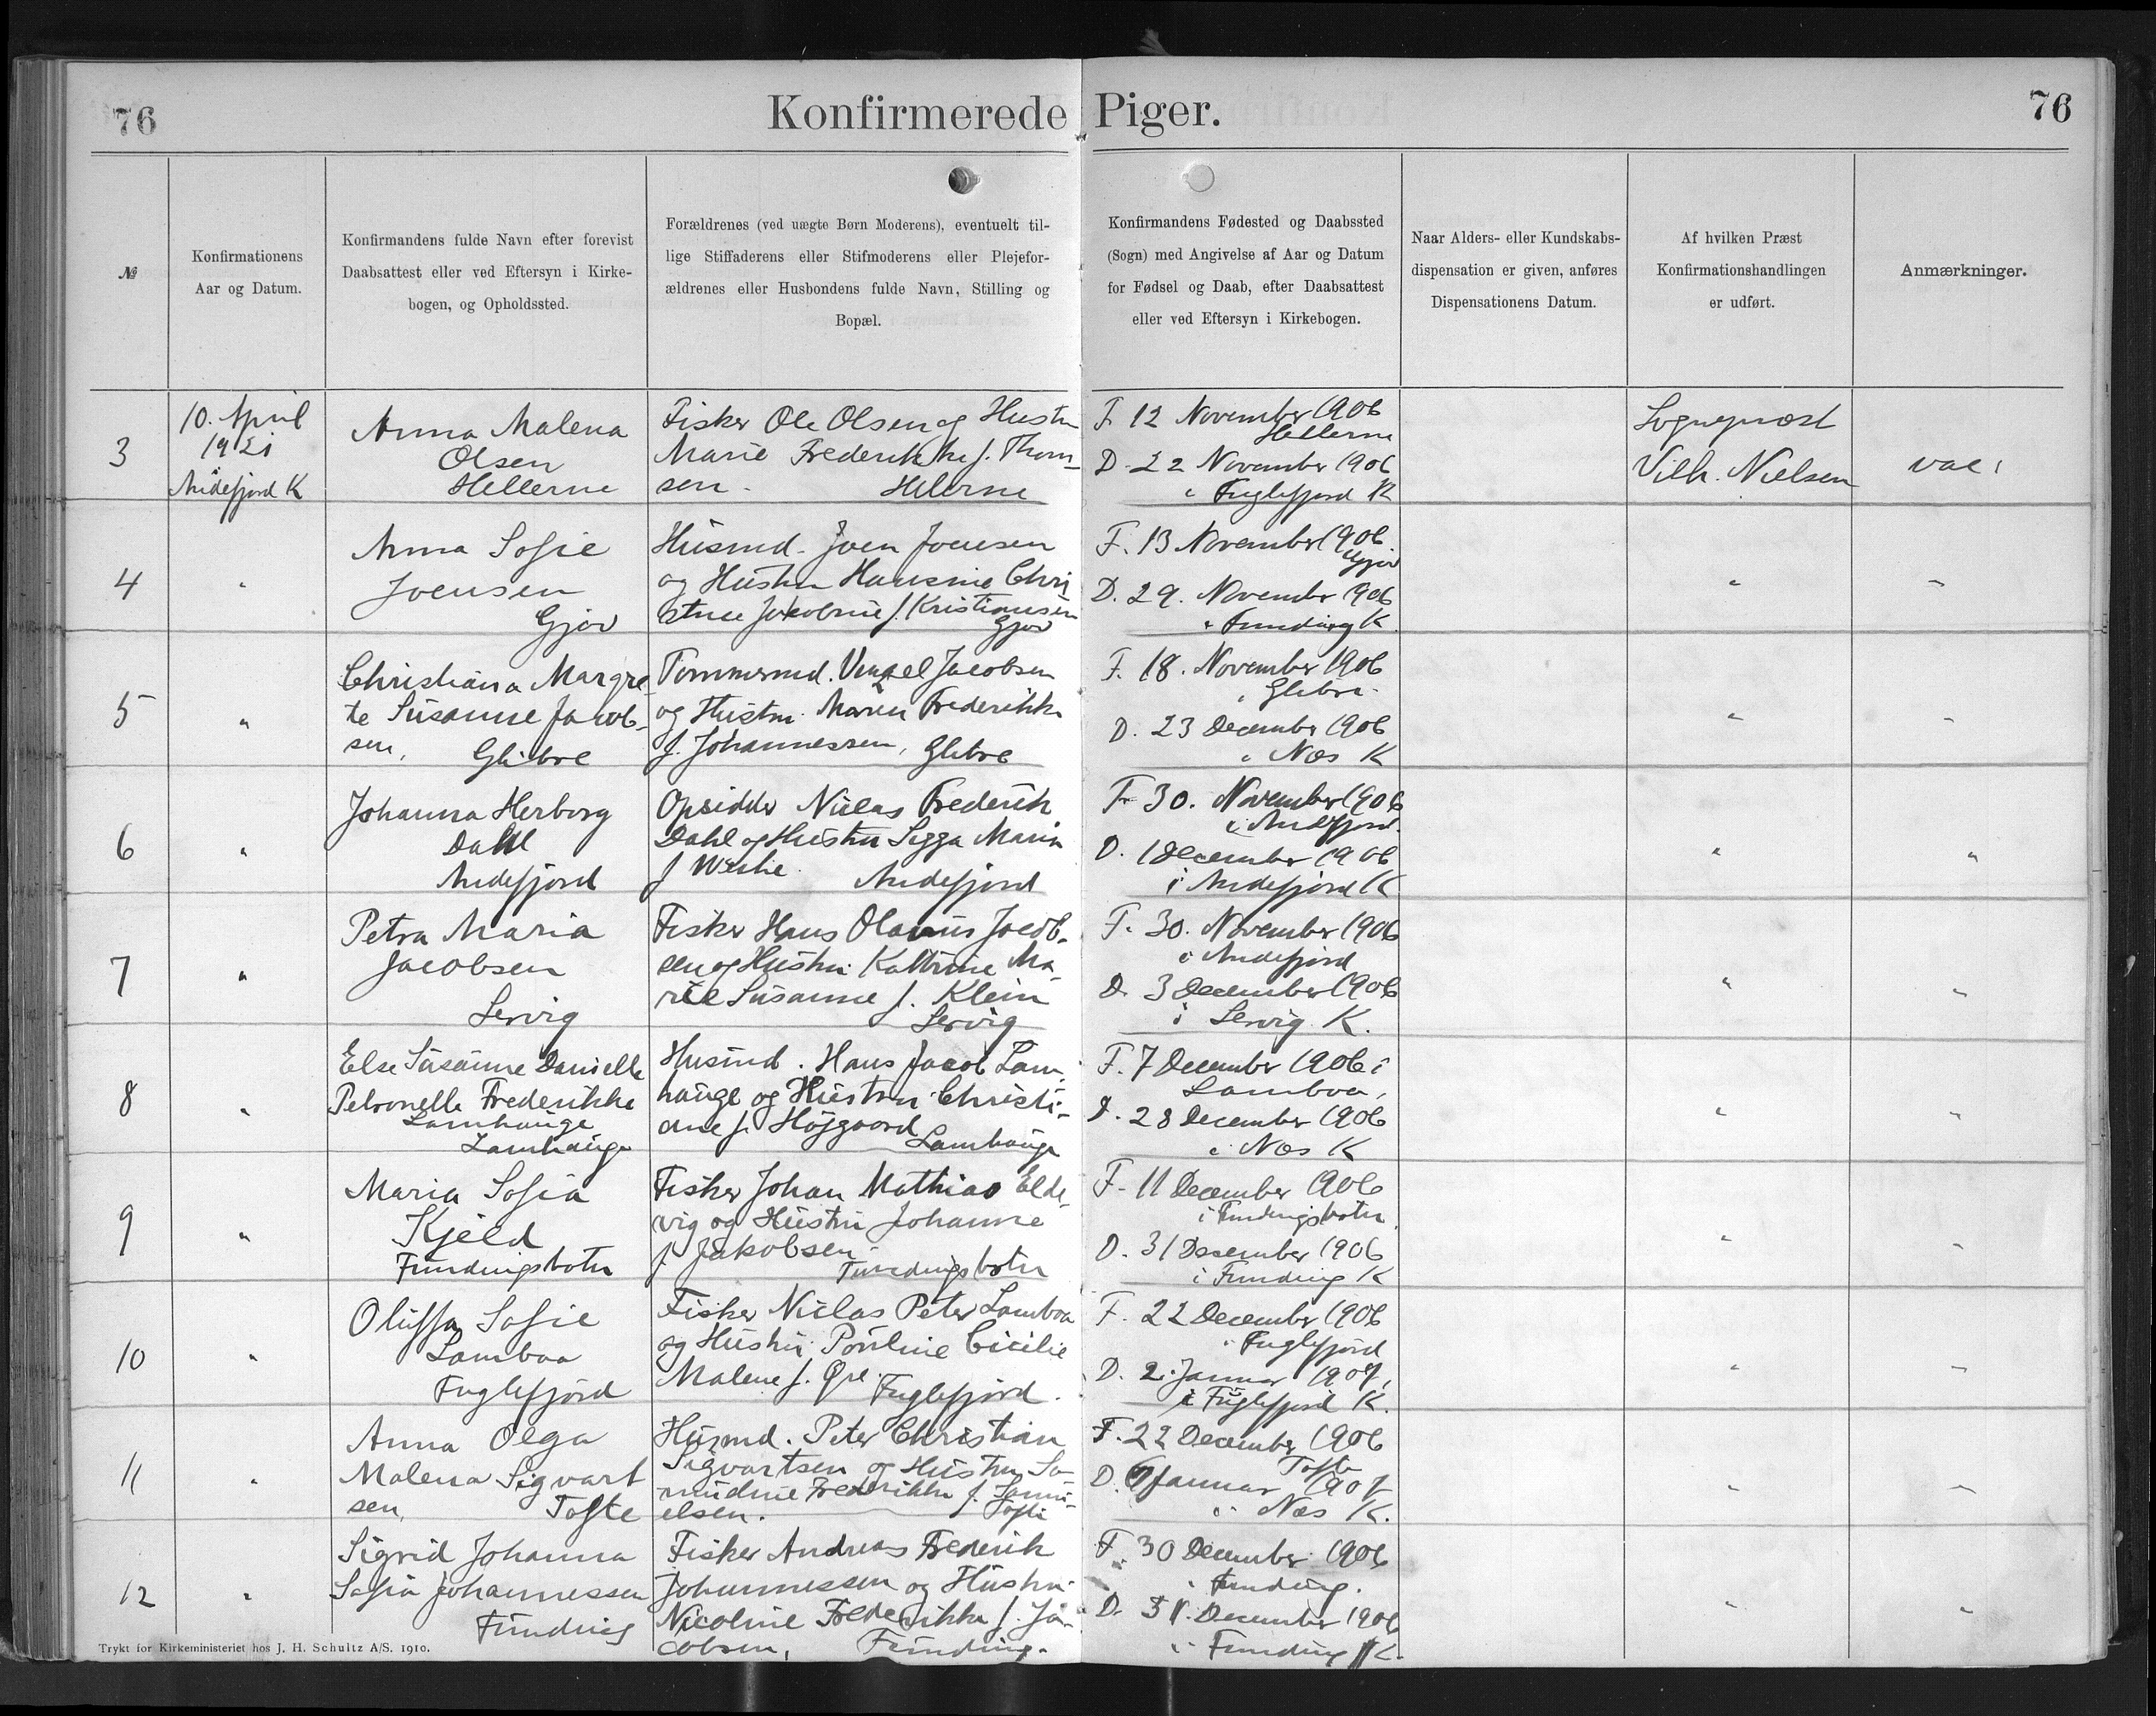 76
Konfirmerede Piger.
76
№
Konfirmationens
Aar og Datum.
Konfirmandens fulde Navn efter forevist
Daabsattest eller ved Eftersyn i Kirke-
bogen, og Opholdssted.
Forældrenes (ved uægte Børn Moderens), eventuelt til-
lige Stiffaderens eller Stifmoderens eller Plejefor-
ældrenes eller Husbondens fulde Navn, Stilling og
Bopæl.
Konfirmandens Fødested og Daabssted
(Sogn) med Angivelse af Aar og Datum
for Fødsel og Daab, efter Daabsattest
eller ved Eftersyn i Kirkebogen.
Naar Alders- eller Kundskabs-
dispensation er given, anføres
Dispensationens Datum.
Af hvilken Præst
Konfirmationshandlingen
er udført.
Anmærkninger.
3
10. April
1921
Andefjord K
Anna Malena
Olsen
Hellerne
Fisker Ole Olsen og Hustru
Marie Frederikke f. Thom-
sen. Hellerne
F. 12 November 1906
Hellerne
D. 22 November 1906
i Fuglefjord K
Sognepræst
Vilh. Nielsen
vac.
4
"
Anna Sofie
Joensen
Gjov
Husmd. Joen Joensen
og Hustru Hansine Chri
stine Jakobine f. Kristiansen
Gjov
F. 13 November 1906
Gjov
D. 29. November 1906
i Funding K.
"
"
5
"
Christiana Margre-
te Susanne Jacob-
sen, Glibre
Tømmermd. Venzel Jacobsen
og Hustru Maren Frederikke
f. Johannessen, Glibre
F. 18. November 1906
i Glibre.
D. 23 December 1906
i Næs K
"
"
6
"
Johanna Herborg
Dahl
Andefjord
Opsidder Niclas Frederik
Dahl og Hustru Sigga Maria
f Weihe. Andefjord
F. 30. November 1906
i Andefjord.
D. 1 December 1906
i Andefjord K
"
"
7
"
Petra Maria
Jacobsen
Lervig
Fisker Hans Olavus Jacob-
sen og Hustru Kathrine Ma-
rie Susanne f. Klein
Lervig
F. 30. November 1906
i Andefjord
D. 3 December 1906
i Lervig K.
"
"
8
"
Else Susanne Danielle
Petronelle Frederikke
Lamhauge
Lamhauge
Husmd. Hans Jacob Lam-
hauge og Hustru Christi-
ane f. Højgaard
Lamhauge
F. 7 December 1906 i
Lamboa,
D. 28 December 1906
i Næs K
"
"
9
"
Maria Sofia
Kjeld
Fundingsbotn
Fisker Johan Mathias Elde-
vig og Hustru Johanne
f. Jakobsen
Fundingsbotn
F. 11 December 1906
i Fundingsbotn
D. 31 December 1906
i Funding K
"
"
10
"
Oluffa Sofie
Lamboa
Fuglefjord
Fisker Niclas Peter Lamboa
og Hustru Pouline Cicilie
Malene f. Øre. Fuglefjord.
F. 22 December 1906
i Fuglefjord
D. 2. Januar 1907,
i Fuglefjord K.
"
"
11
"
Anna Olga
Malena Sigvart
sen, Tofte
Husmd. Peter Christian
Sigvartsen og Hustru Sa-
mudine Frederikke f. Samu-
elsen. Tofte
F. 22 December 1906
Tofte
D. Januar 1907
i Næs K.
"
"
12
"
Sigrid Johanna
Sofia Johannessen
Funding
Fisker Andreas Frederik
Johannessen og Hustru
Nicoline Frederikke f. Ja-
cobsen, Funding.
F. 30 December 1906
i Funding.
D. 31. December 1906
i Funding K.
"
"
Trykt for Kirkeministeriet hos J. H. Schultz A/S. 1910.